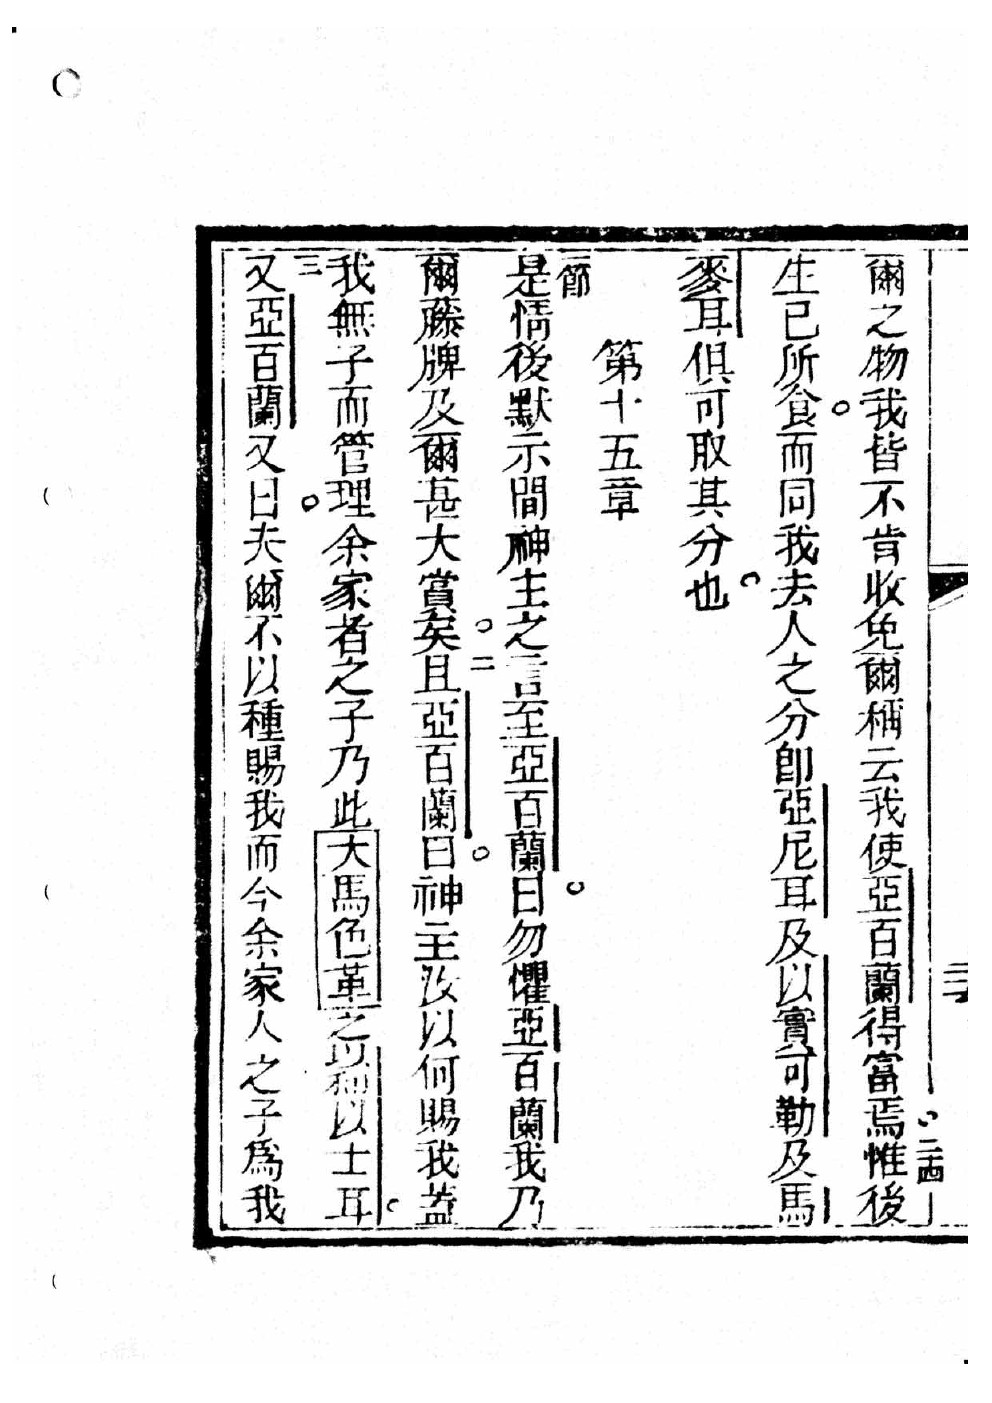 爾之物我皆不肯收免爾稱云我使亞百蘭得富焉。二十四惟後
生已所食。而同我去人之分卽亞尼耳及以實可勒及馬
麥耳俱可取其分也。
第十五章
一節是情後默示間神主之言至亞百蘭曰。勿懼亞百蘭我乃
爾藤牌及爾甚大賞矣。二且亞百蘭曰。神主汝以何賜我蓋
我無子而管理余家者之子乃此大馬色革之以利以士耳。
三又亞百蘭又曰。夫爾不以種賜我而今余家人之子爲我